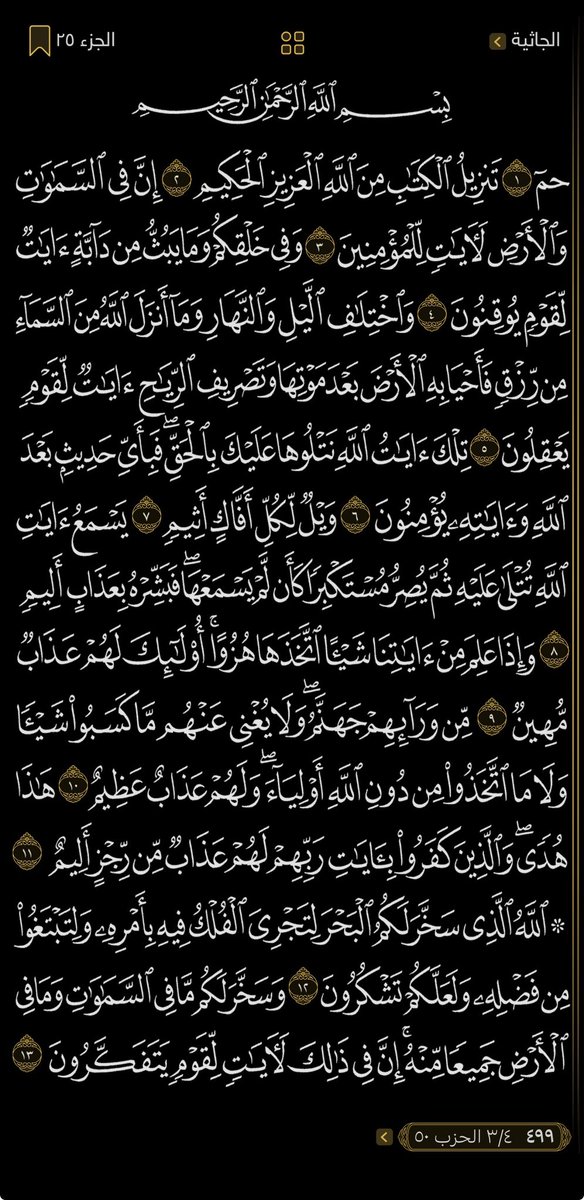 الجاثية
الجزء ٢٥
بِسْمِ ٱللَّهِ ٱلرَّحْمَٰنِ ٱلرَّحِيمِ
حمٓ ١ تَنزِيلُ ٱلْكِتَٰبِ مِنَ ٱللَّهِ ٱلْعَزِيزِ ٱلْحَكِيمِ ٢ إِنَّ فِى ٱلسَّمَٰوَٰتِ
وَٱلْأَرْضِ لَءَايَٰتٍ لِّلْمُؤْمِنِينَ ٣ وَفِى خَلْقِكُمْ وَمَا يَبُثُّ مِن دَآبَّةٍ ءَايَٰتٌ
لِّقَوْمٍ يُوقِنُونَ ٤ وَٱخْتِلَٰفِ ٱلَّيْلِ وَٱلنَّهَارِ وَمَآ أَنزَلَ ٱللَّهُ مِنَ ٱلسَّمَآءِ
مِن رِّزْقٍ فَأَحْيَا بِهِ ٱلْأَرْضَ بَعْدَ مَوْتِهَا وَتَصْرِيفِ ٱلرِّيَٰحِ ءَايَٰتٌ لِّقَوْمٍ
يَعْقِلُونَ ٥ تِلْكَ ءَايَٰتُ ٱللَّهِ نَتْلُوهَا عَلَيْكَ بِٱلْحَقِّ ۖ فَبِأَىِّ حَدِيثٍۭ بَعْدَ
ٱللَّهِ وَءَايَٰتِهِۦ يُؤْمِنُونَ ٦ وَيْلٌ لِّكُلِّ أَفَّاكٍ أَثِيمٍ ٧ يَسْمَعُ ءَايَٰتِ
ٱللَّهِ تُتْلَىٰ عَلَيْهِ ثُمَّ يُصِرُّ مُسْتَكْبِرًا كَأَن لَّمْ يَسْمَعْهَا ۖ فَبَشِّرْهُ بِعَذَابٍ أَلِيمٍ
٨ وَإِذَا عَلِمَ مِنْ ءَايَٰتِنَا شَيْـًٔا ٱتَّخَذَهَا هُزُوًا ۚ أُو۟لَٰٓئِكَ لَهُمْ عَذَابٌ
مُّهِينٌ ٩ مِّن وَرَآئِهِمْ جَهَنَّمُ ۖ وَلَا يُغْنِى عَنْهُم مَّا كَسَبُوا۟ شَيْـًٔا
وَلَا مَا ٱتَّخَذُوا۟ مِن دُونِ ٱللَّهِ أَوْلِيَآءَ ۖ وَلَهُمْ عَذَابٌ عَظِيمٌ ١٠ هَٰذَا
هُدًى ۖ وَٱلَّذِينَ كَفَرُوا۟ بِـَٔايَٰتِ رَبِّهِمْ لَهُمْ عَذَابٌ مِّن رِّجْزٍ أَلِيمٌ ١١
۞ ٱللَّهُ ٱلَّذِى سَخَّرَ لَكُمُ ٱلْبَحْرَ لِتَجْرِىَ ٱلْفُلْكُ فِيهِ بِأَمْرِهِۦ وَلِتَبْتَغُوا۟
مِن فَضْلِهِۦ وَلَعَلَّكُمْ تَشْكُرُونَ ١٢ وَسَخَّرَ لَكُم مَّا فِى ٱلسَّمَٰوَٰتِ وَمَا فِى
ٱلْأَرْضِ جَمِيعًا مِّنْهُ ۚ إِنَّ فِى ذَٰلِكَ لَءَايَٰتٍ لِّقَوْمٍ يَتَفَكَّرُونَ ١٣
٤٩٩ ٣/٤ الحزب ٥٠